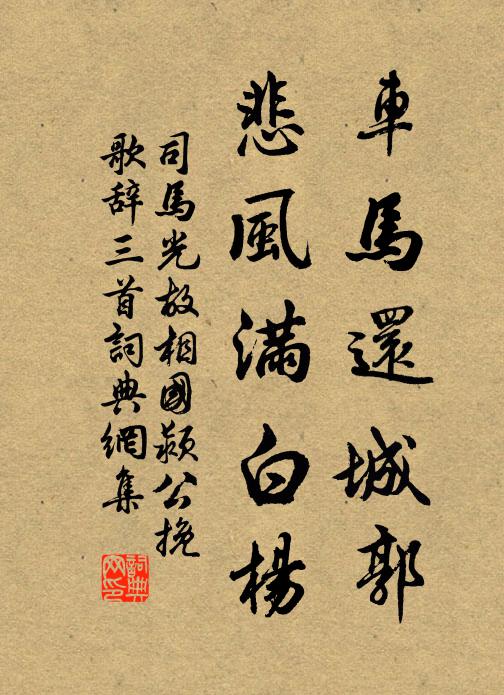 車馬還城郭
悲風滿白楊
司馬光故相國潁公挽
歌辞三首詞典網集
詞典
网印